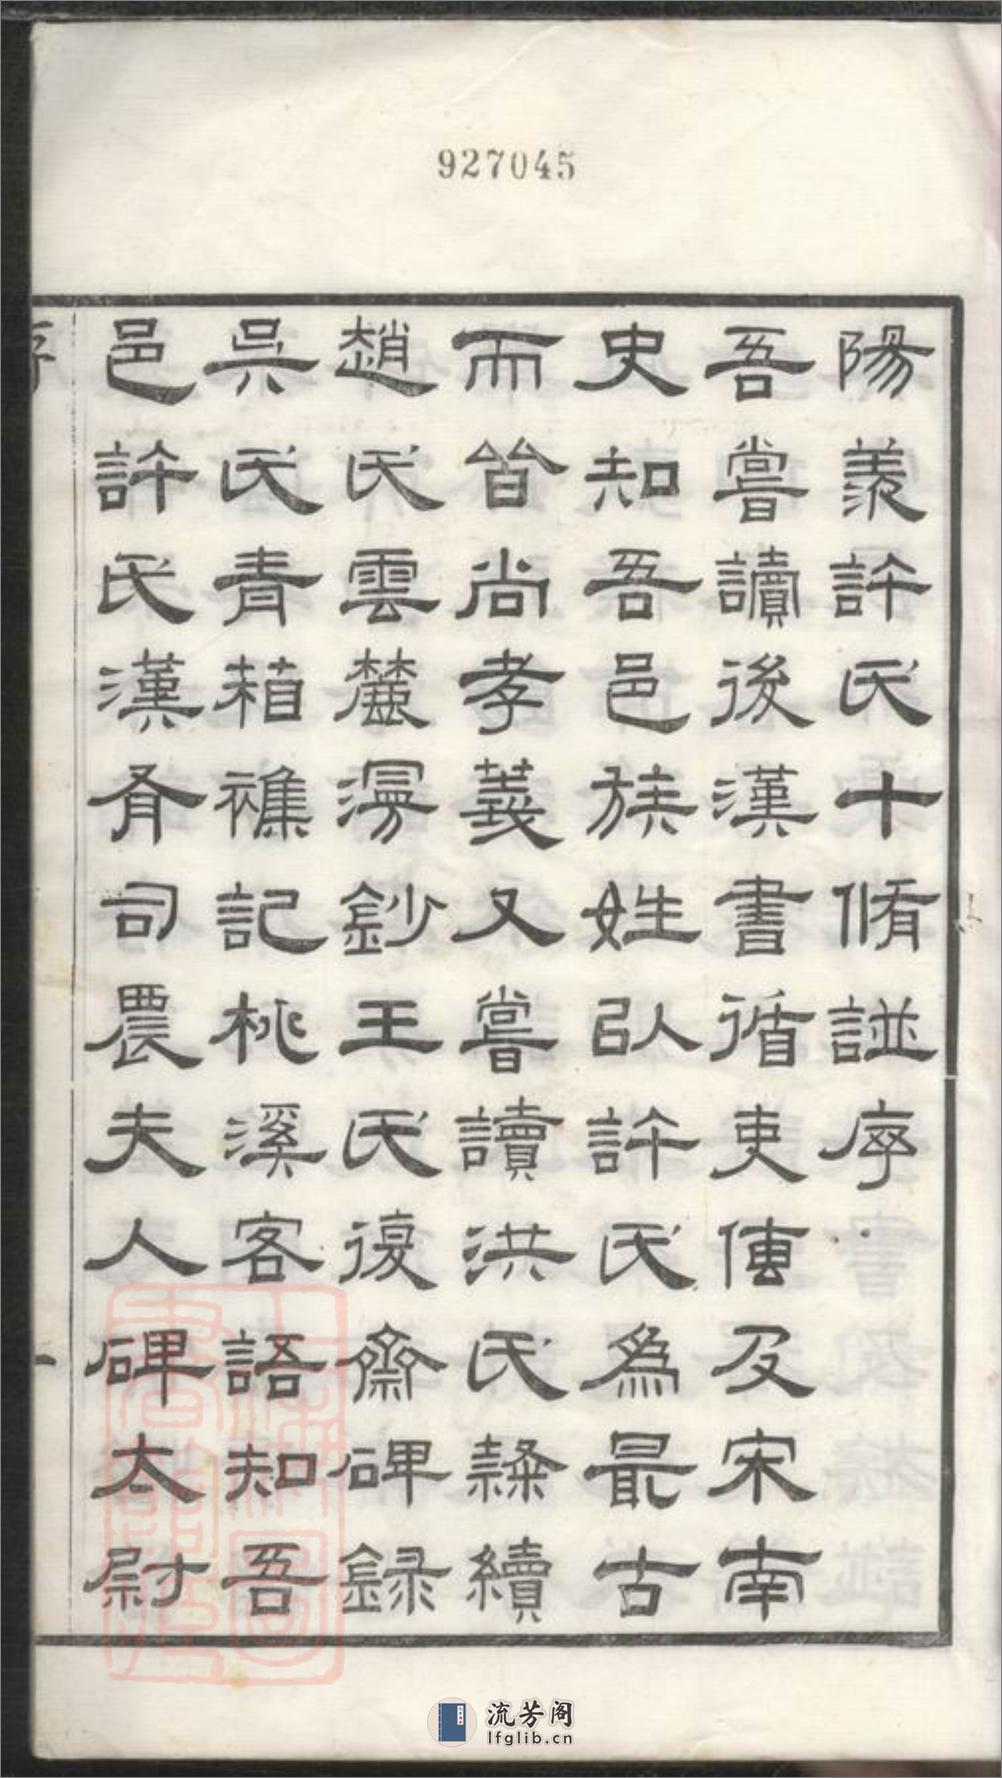 927045
陽羨許氏十脩譜序
吾嘗讀後漢書循吏傳及宋南
史知吾邑族姓以許氏為最古
而皆尚孝義又嘗讀洪氏隸續
趙氏雲麓漫鈔王氏復齋碑錄
吳氏青箱襍記桃溪客語知吾
邑許氏漢有司農夫人碑太尉
序
一
流芳阁
lfglib.cn